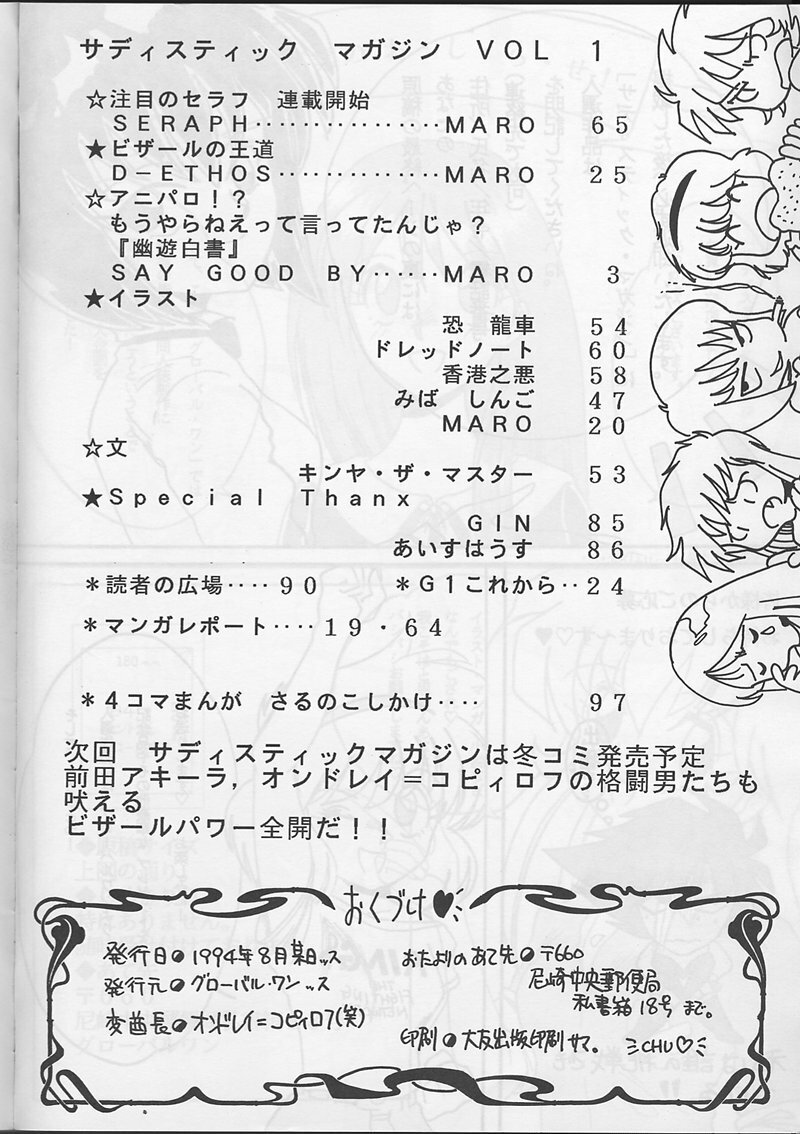 サディスティック　マガジン　VOL　1
☆注目のセラフ　連載開始
SERAPH‥‥‥‥‥‥‥‥MARO　65
★ビザールの王道
D－ETHOS‥‥‥‥‥‥‥MARO　25
☆アニパロ！？
もうやらねえって言ってたんじゃ？
『幽遊白書』
SAY　GOOD　BY‥‥‥MARO　3
★イラスト
恐　龍車　54
ドレッドノート　60
香港之悪　58
みば　しんご　47
MARO　20
☆文
キンヤ・ザ・マスター　53
★Special　Thanx
GIN　85
あいすはうす　86
＊読者の広場‥‥90　＊G1これから‥24
＊マンガレポート‥‥19・64
＊4コマまんが　さるのこしかけ‥‥　97
次回　サディスティックマガジンは冬コミ発売予定
前田アキーラ，オンドレイ＝コピィロフの格闘男たちも
吠える
ビザールパワー全開だ！！
おくづけ♥
発行日●1994年8月某日ッス
発行元●グローバル・ワンッス
変酋長●オンドレイ=コピィロフ(笑)
おたよりのあて先●〒660
尼崎中央郵便局
私書箱18号まで。
印刷●大友出版印刷サマ。
CHU♡